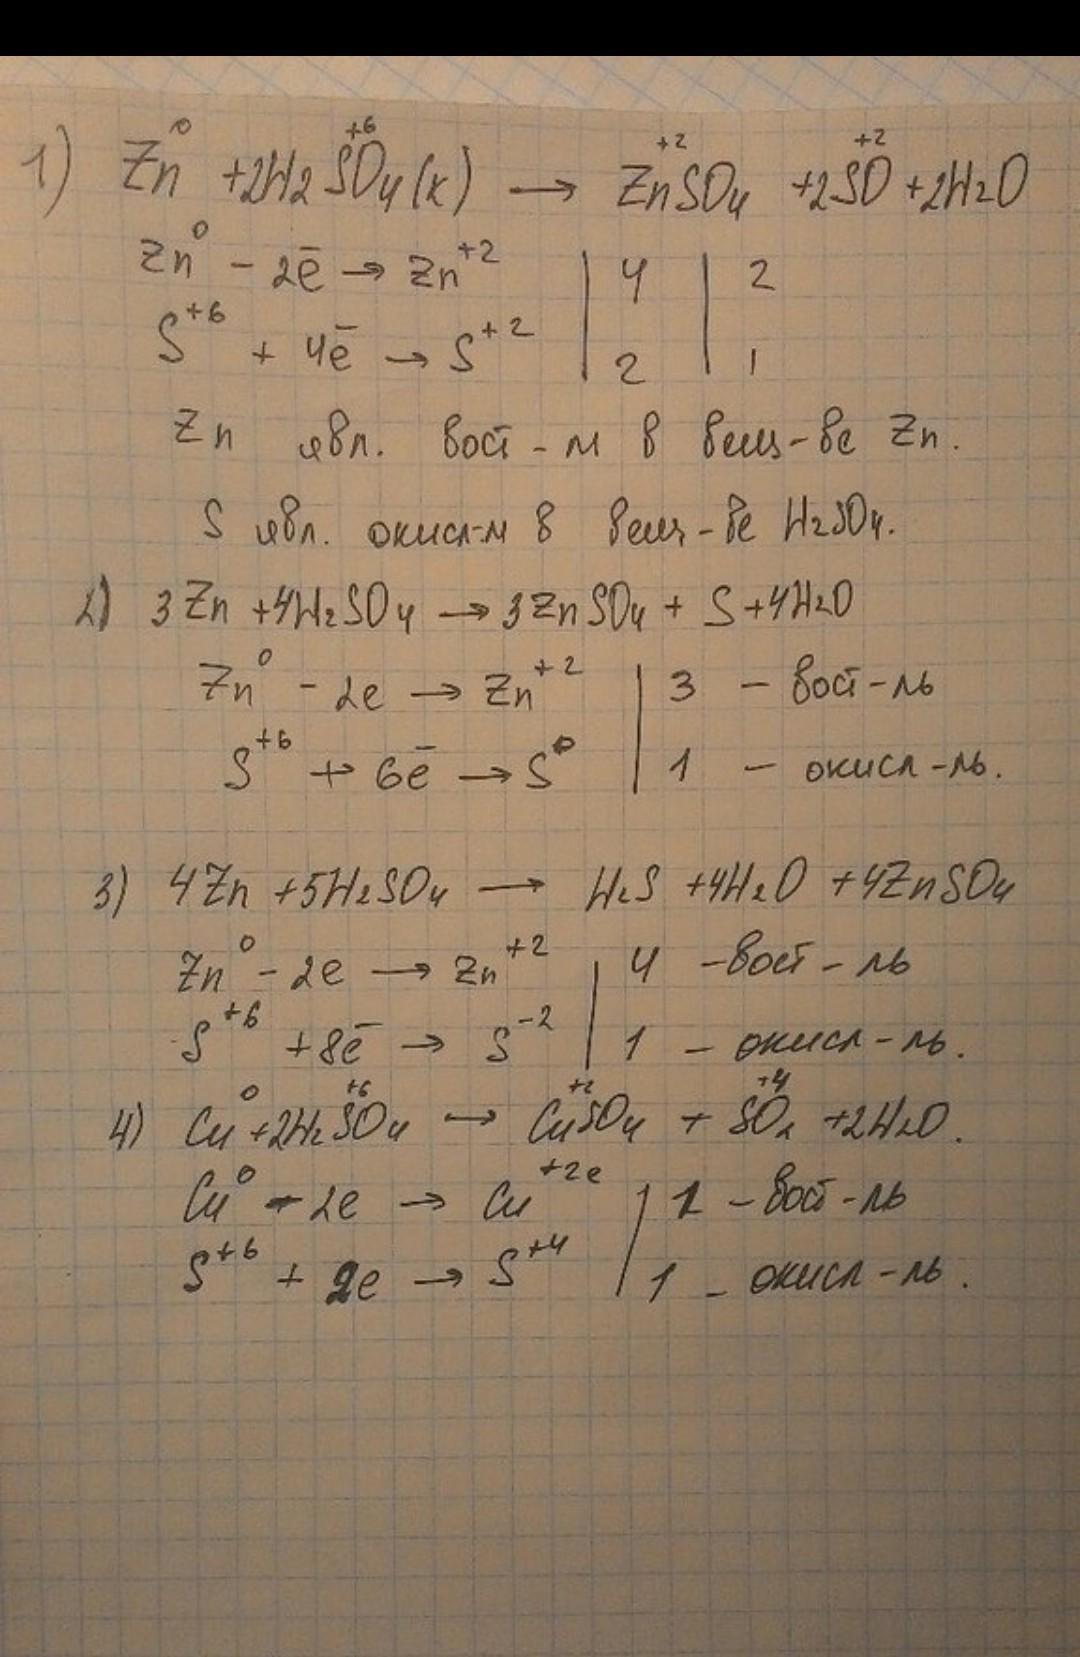 1) Zn⁰ + 2H₂S⁺⁶O₄(к) → Zn⁺²SO₄ + 2S⁺²O + 2H₂O
Zn⁰ - 2ē → Zn⁺² | 4 | 2
S⁺⁶ + 4ē → S⁺² | 2 | 1
Zn явл. вост-м в вещ-ве Zn.
S явл. окисл-м в вещ-ве H₂SO₄.
2) 3Zn + 4H₂SO₄ → 3ZnSO₄ + S + 4H₂O
Zn⁰ - 2e → Zn⁺² | 3 - вост-ль
S⁺⁶ + 6ē → S⁰ | 1 - окисл-ль.
3) 4Zn + 5H₂SO₄ → H₂S + 4H₂O + 4ZnSO₄
Zn⁰ - 2e → Zn⁺² | 4 - вост-ль
S⁺⁶ + 8ē → S⁻² | 1 - окисл-ль.
4) Cu⁰ + 2H₂S⁺⁶O₄ → Cu⁺²SO₄ + S⁺⁴O₂ + 2H₂O.
Cu⁰ - 2e → Cu⁺²ᵉ | 1 - вост-ль
S⁺⁶ + 2e → S⁺⁴ | 1 - окисл-ль.